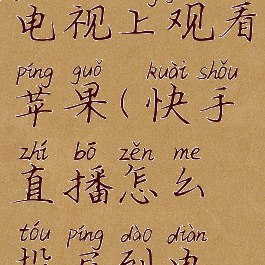 电视上观看
píng guǒ kuài shǒu
苹果(快手
zhí bō zěn me
直播怎么
tóu píng dào diàn
投屏到电